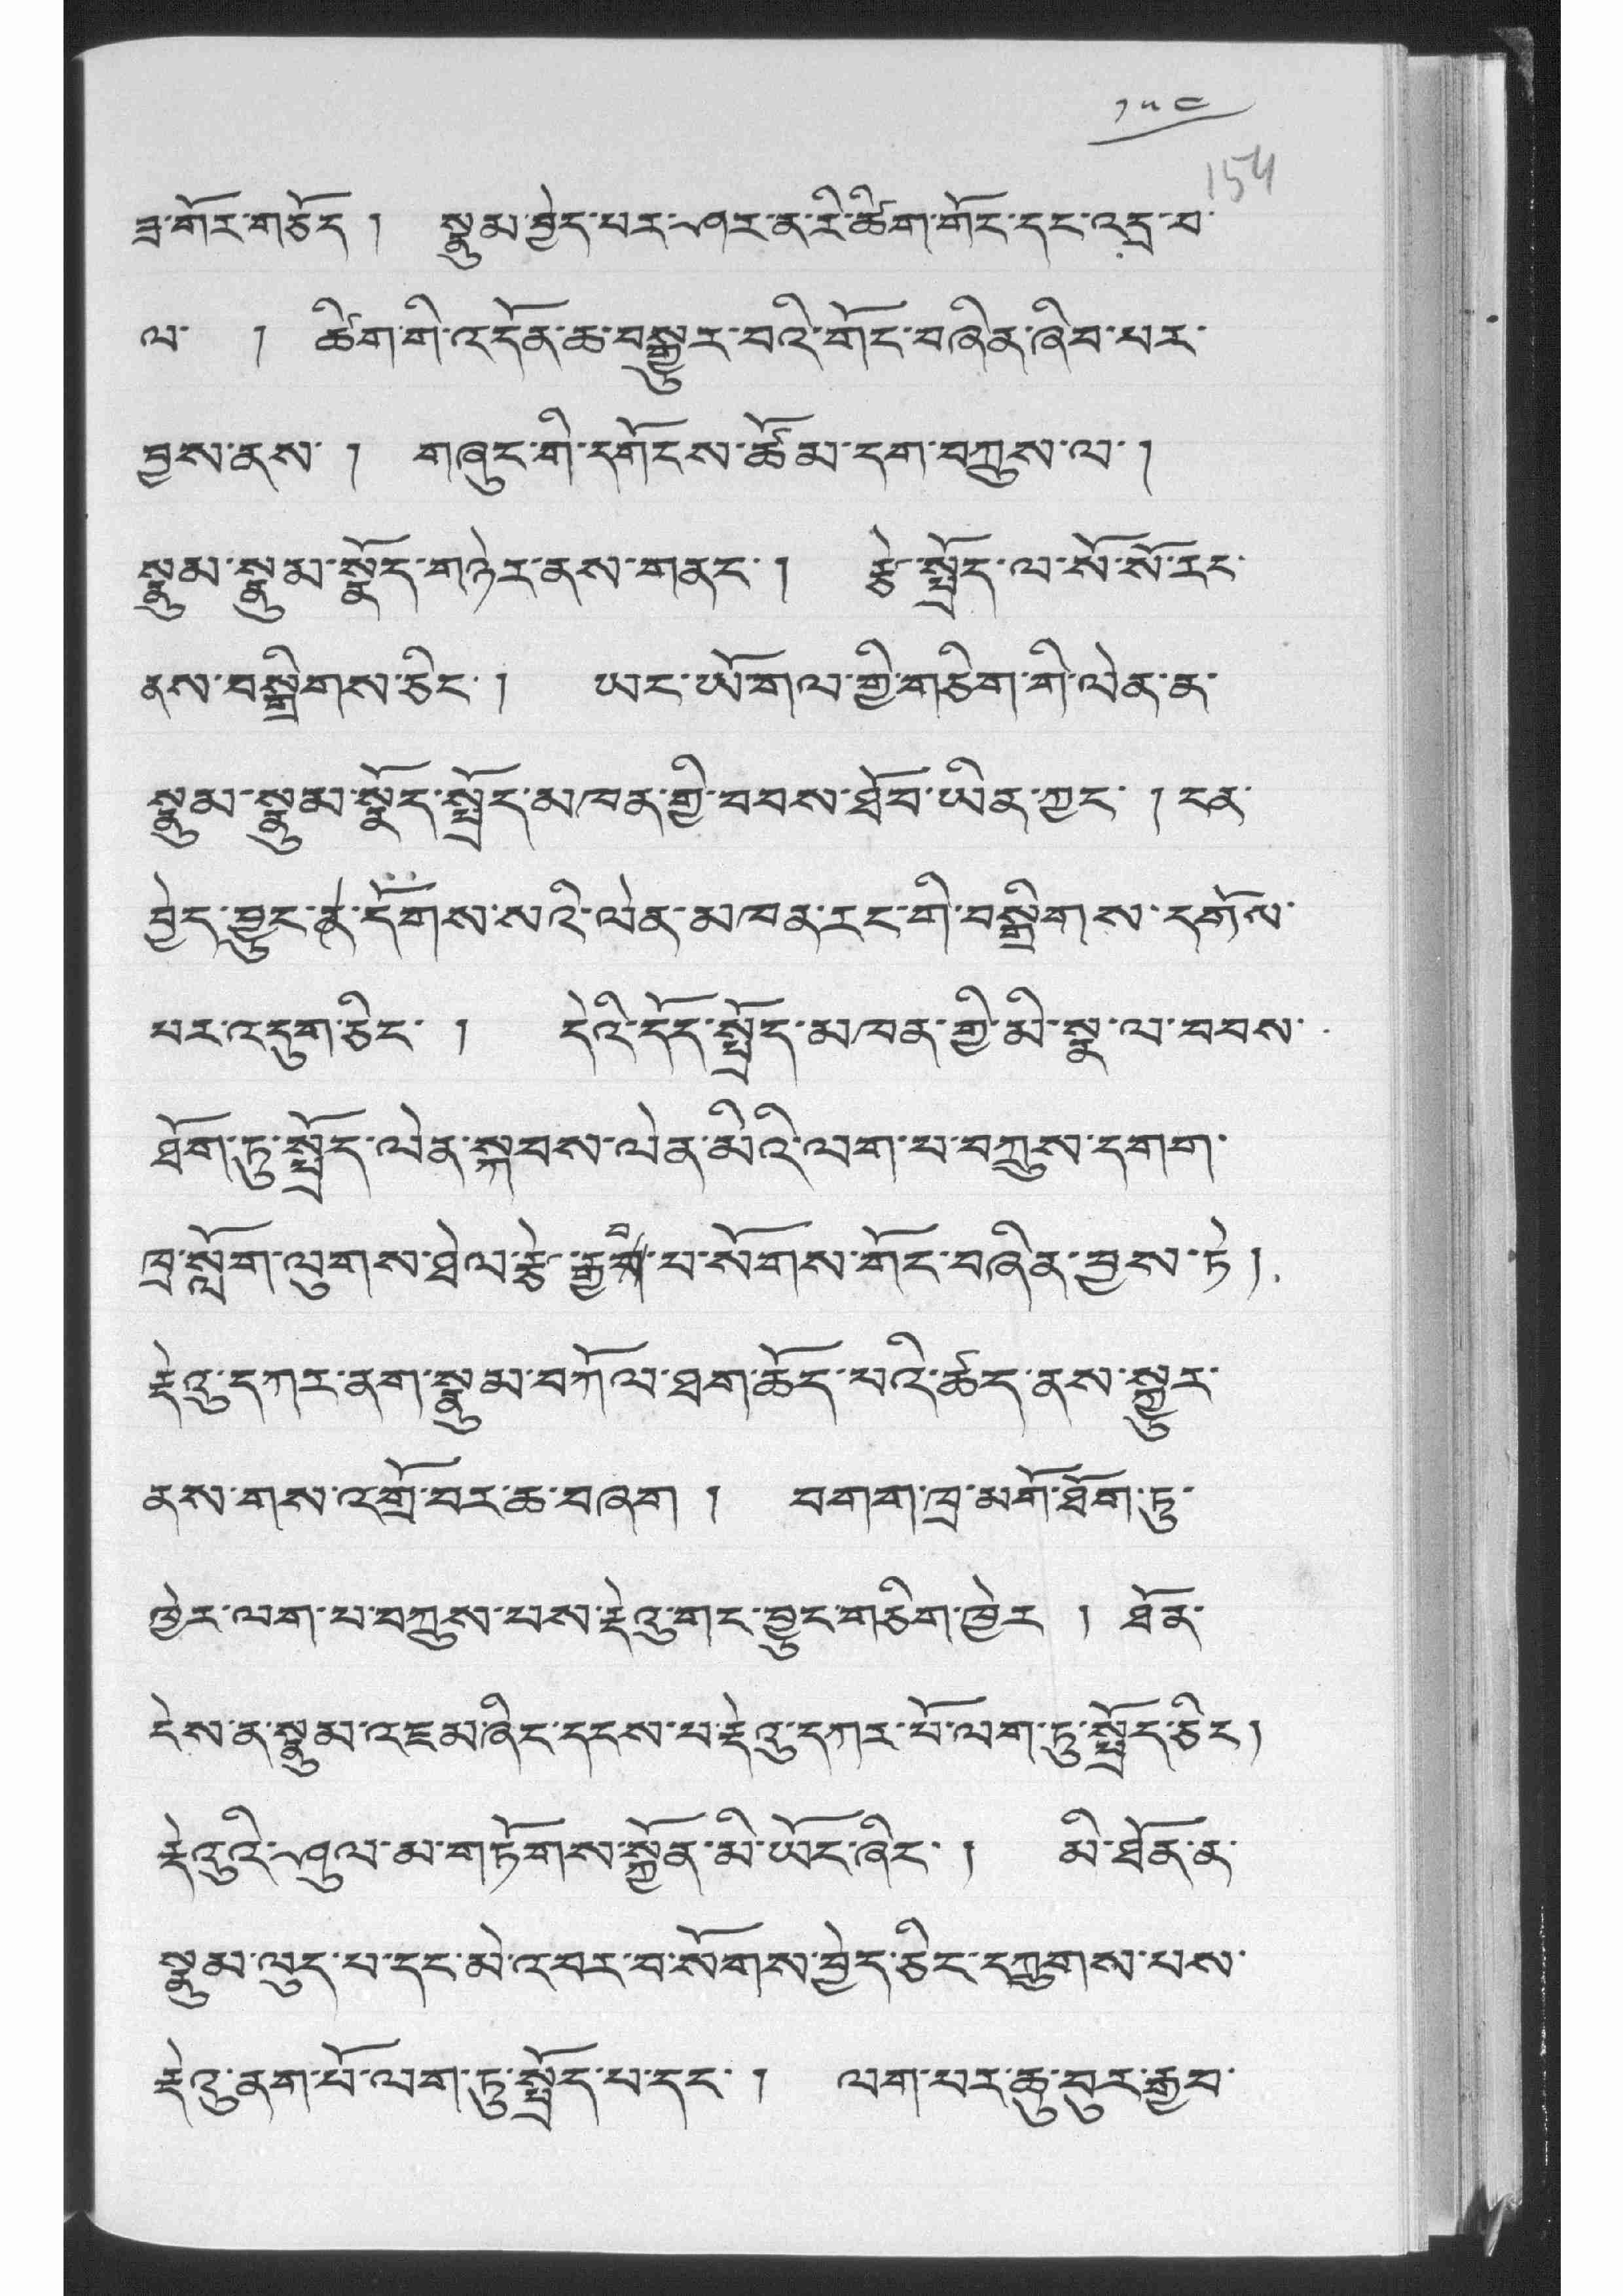 ༡༥༤
154
ཟླ་གོར་གཅོད །  སྣུམ་བྱེད་པར་ཤར་ན་རི་ཚིག་གོང་དང་འདྲ་བ་
ལ་ །  ཚིག་གི་འདོན་ཆ་བསྒྱུར་བའི་གོང་བཞིན་ཞིབ་པར་
བྱས་ནས་ །  གཞུང་གི་དགོངས་ཚོམ་དག་བཀྲུས་ལ་ །
སྣུམ་སྣུམ་སྣོད་གཉེར་ནས་གནང་ །  རྩེ་སྤྲོད་ལ་སོ་སོ་རང་
ནས་བསྒྲིགས་ཅིང་ །  ཡང་ཡོགལ་གྱི་གཅིག་གི་ལེན་ན་
སྣུམ་སྣུམ་སྣོད་སྤྲོད་མཁན་གྱི་བབས་ཐོབ་ཡིན་ཀྱང་ ། ངན་
བྱེད་བྱུང་ན་དོགས་སའི་ལེན་མཁན་རང་གི་བསྒྲིགས་དགོས་
པར་འདུག་ཅིང་ །  དེའི་དོད་སྤྲོད་མཁན་གྱི་མི་སྣ་ལ་བབས་
ཐོག་ཏུ་སྤྲོད་ལེན་སྐབས་ལེན་མིའི་ལག་པ་བཀྲུས་དགག་
ཁྲ་སློག་ལུགས་ཐེལ་རྩེ་རྒྱབ་པ་སོགས་གོང་བཞིན་བྱས་ཏེ །
རྡེའུ་དཀར་ནག་སྣུམ་བཀོལ་ཐག་ཆོད་པའི་ཚད་ནས་སྐྱུར་
ནས་གས་འགྲོ་བར་ཆ་བཞག །  བགག་ཁྲ་མགོ་ཐོག་ཏུ་
ཁྱེར་ལག་པ་བཀྲུས་པས་རྡེའུ་གང་བྱུང་གཅིག་ཁྱེར །  ཐོན་
ངེས་ན་སྣུམ་འཇམ་ཞིང་དངས་པ་རྡེའུ་དཀར་པོ་ལག་ཏུ་སྤྲོད་ཅིང །
རྡེའུའི་ཤུལ་མ་གཏོགས་སྐྱོན་མི་ཡོང་ཞིང་ །  མི་ཐོན་ན་
སྣུམ་ལུད་པ་དང་མེ་འབར་བ་སོགས་བྱེད་ཅིང་དཀྲུགས་པས་
རྡེའུ་ནག་པོ་ལག་ཏུ་སྤྲོད་པ་དང་ །  ལག་པར་ཆུ་བུར་རྒྱབ་